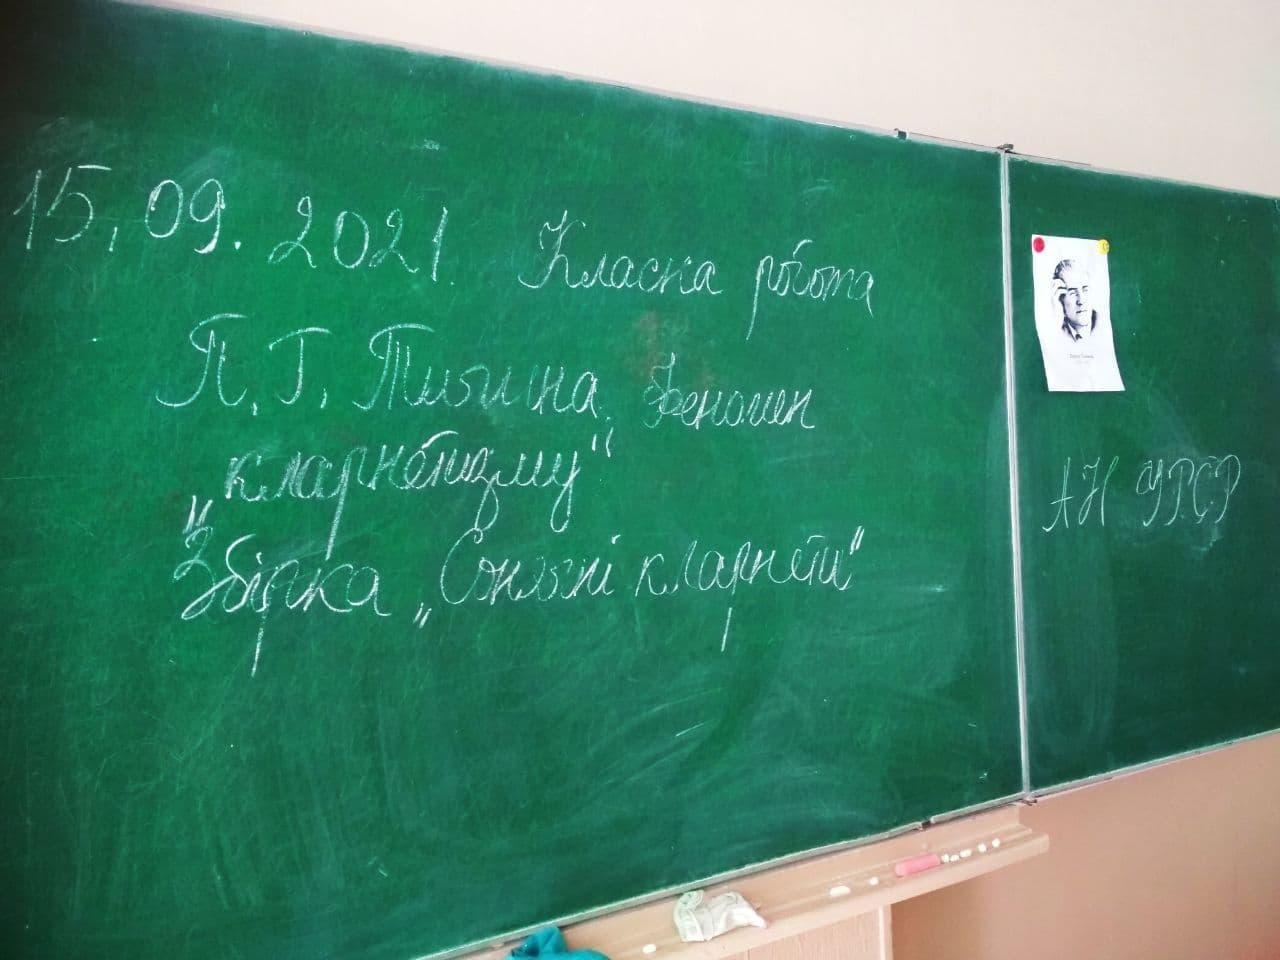 15.09.2021. Класна робота
П. Г. Тичина. Феномен
„кларнетизму"
Збірка „Сонячні кларнети"
АН УРСР